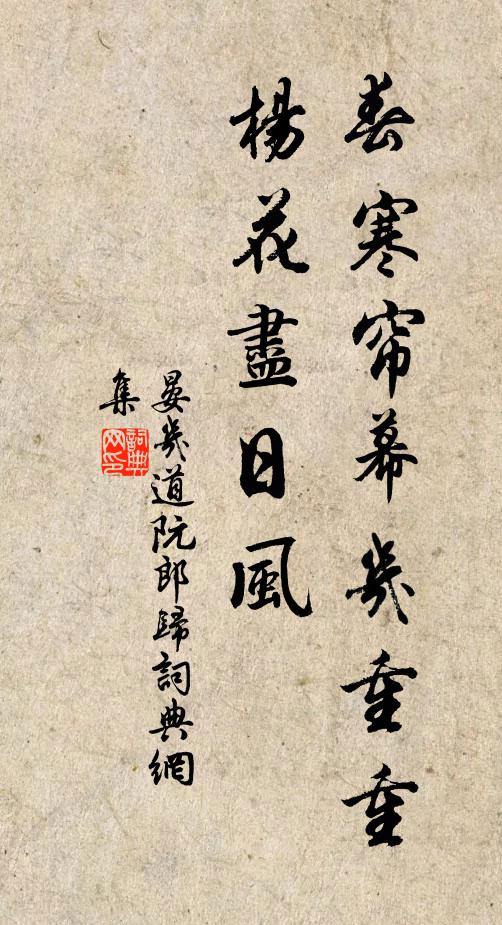 春寒帘幕幾重重
楊花盡日風
晏幾道阮郎歸詞典網
集
詞典
网印